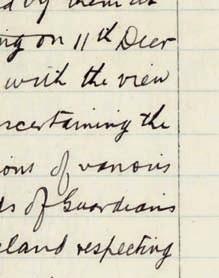 ed by them at
ing on 11th Decr
with the view
ascertaining the
ions of various
ds of Guardians
eland respecting